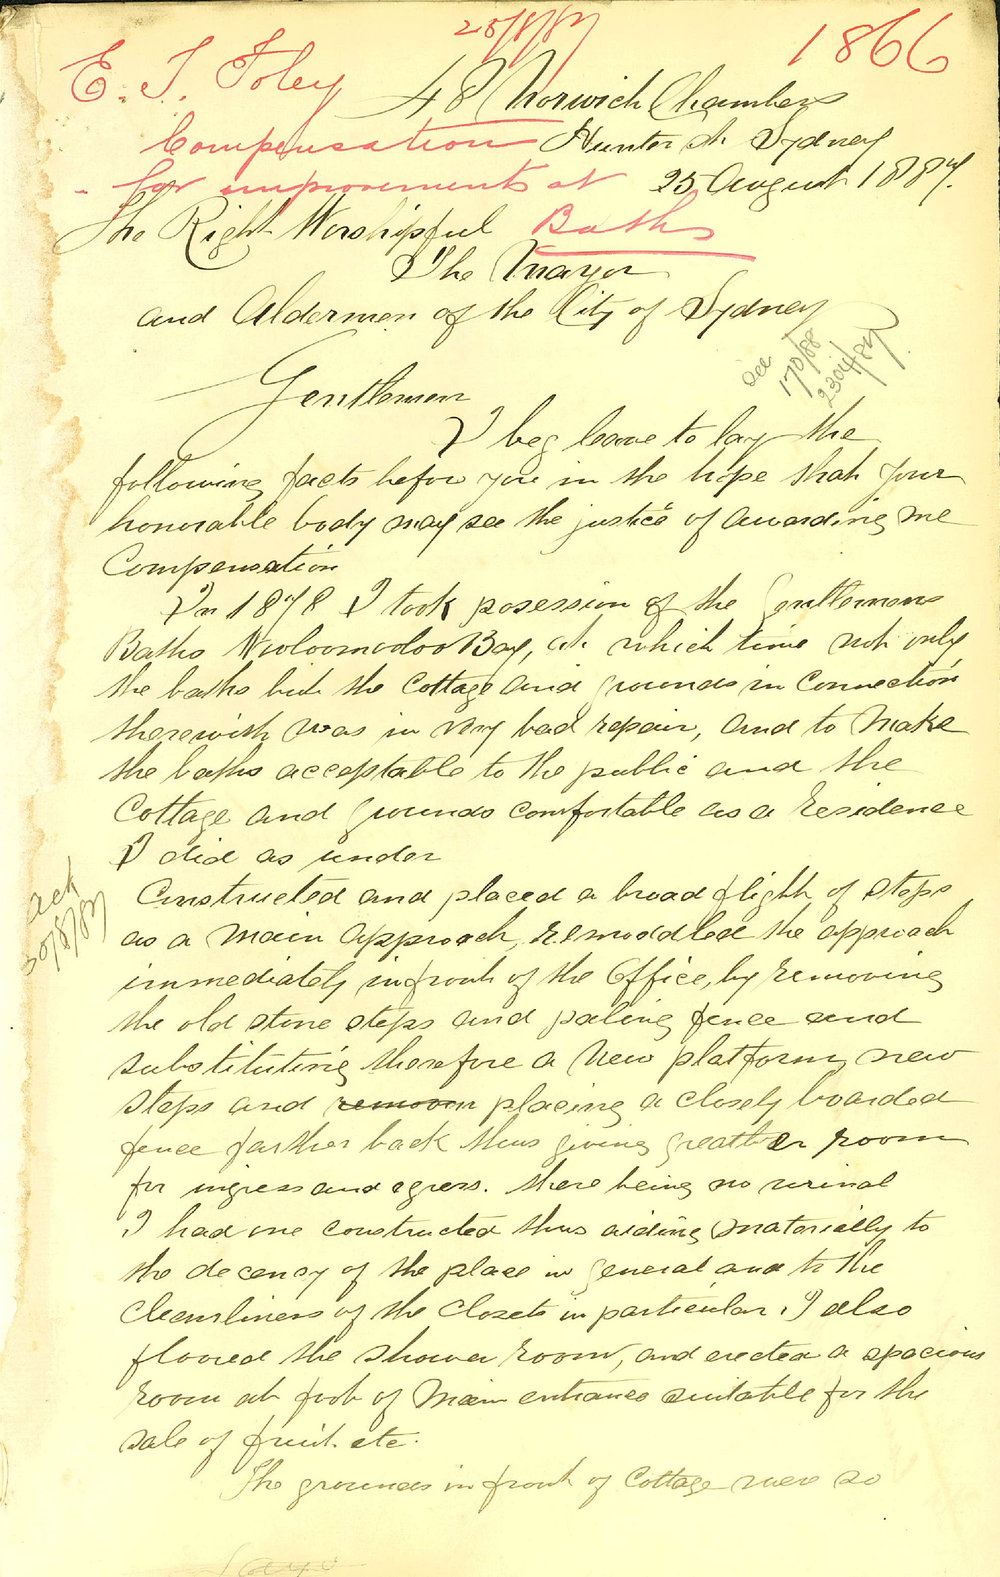 25/8/87
1866
E. J. Foley
48 Norwich Chambers
Compensation
Hunter St Sydney
for improvements at
25 August 1887.
The Right Worshipful
Baths
The Mayor
and Aldermen of the City of Sydney
170/88
2304/87
Gentlemen
I beg leave to lay the
following facts before you in the hope that your
honorable body may see the justice of awarding me
Compensation
In 1878 I took posession of the Gentlemens
Baths Wooloomooloo Bay, at which time not only
the baths but the Cottage and grounds in connection
therewith was in very bad repair, and to make
the baths acceptable to the public and the
Cottage and grounds comfortable as a residence
I did as under
Ack
30/8/87
Constructed and placed a broad flight of steps
as a main approach, remoddled the approach
immediately in front of the Office, by removing
the old stone steps and paling fence and
substituting therefore a new platform, new
steps and removin placing a closely boarded
fence farther back thus giving greatter room
for ingress and egress. there being no urinal
I had one constructed thus aiding materially to
the decency of the place in general and to the
cleanliness of the Closets in particular. I also
floored the shower room, and erected a spacious
room at foot of main entrance suitable for the
sale of fruit etc.
The grounds in front of Cottage were so